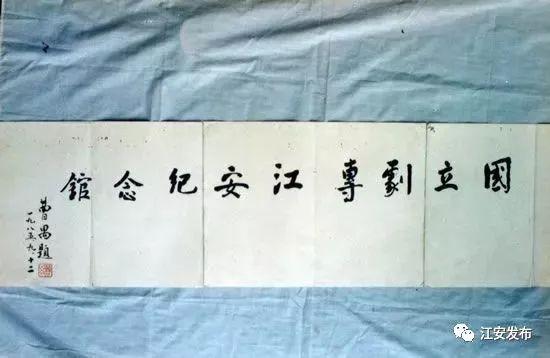 國立劇專江安紀念館
曹禺題
一九八五.九.十二
江安发布